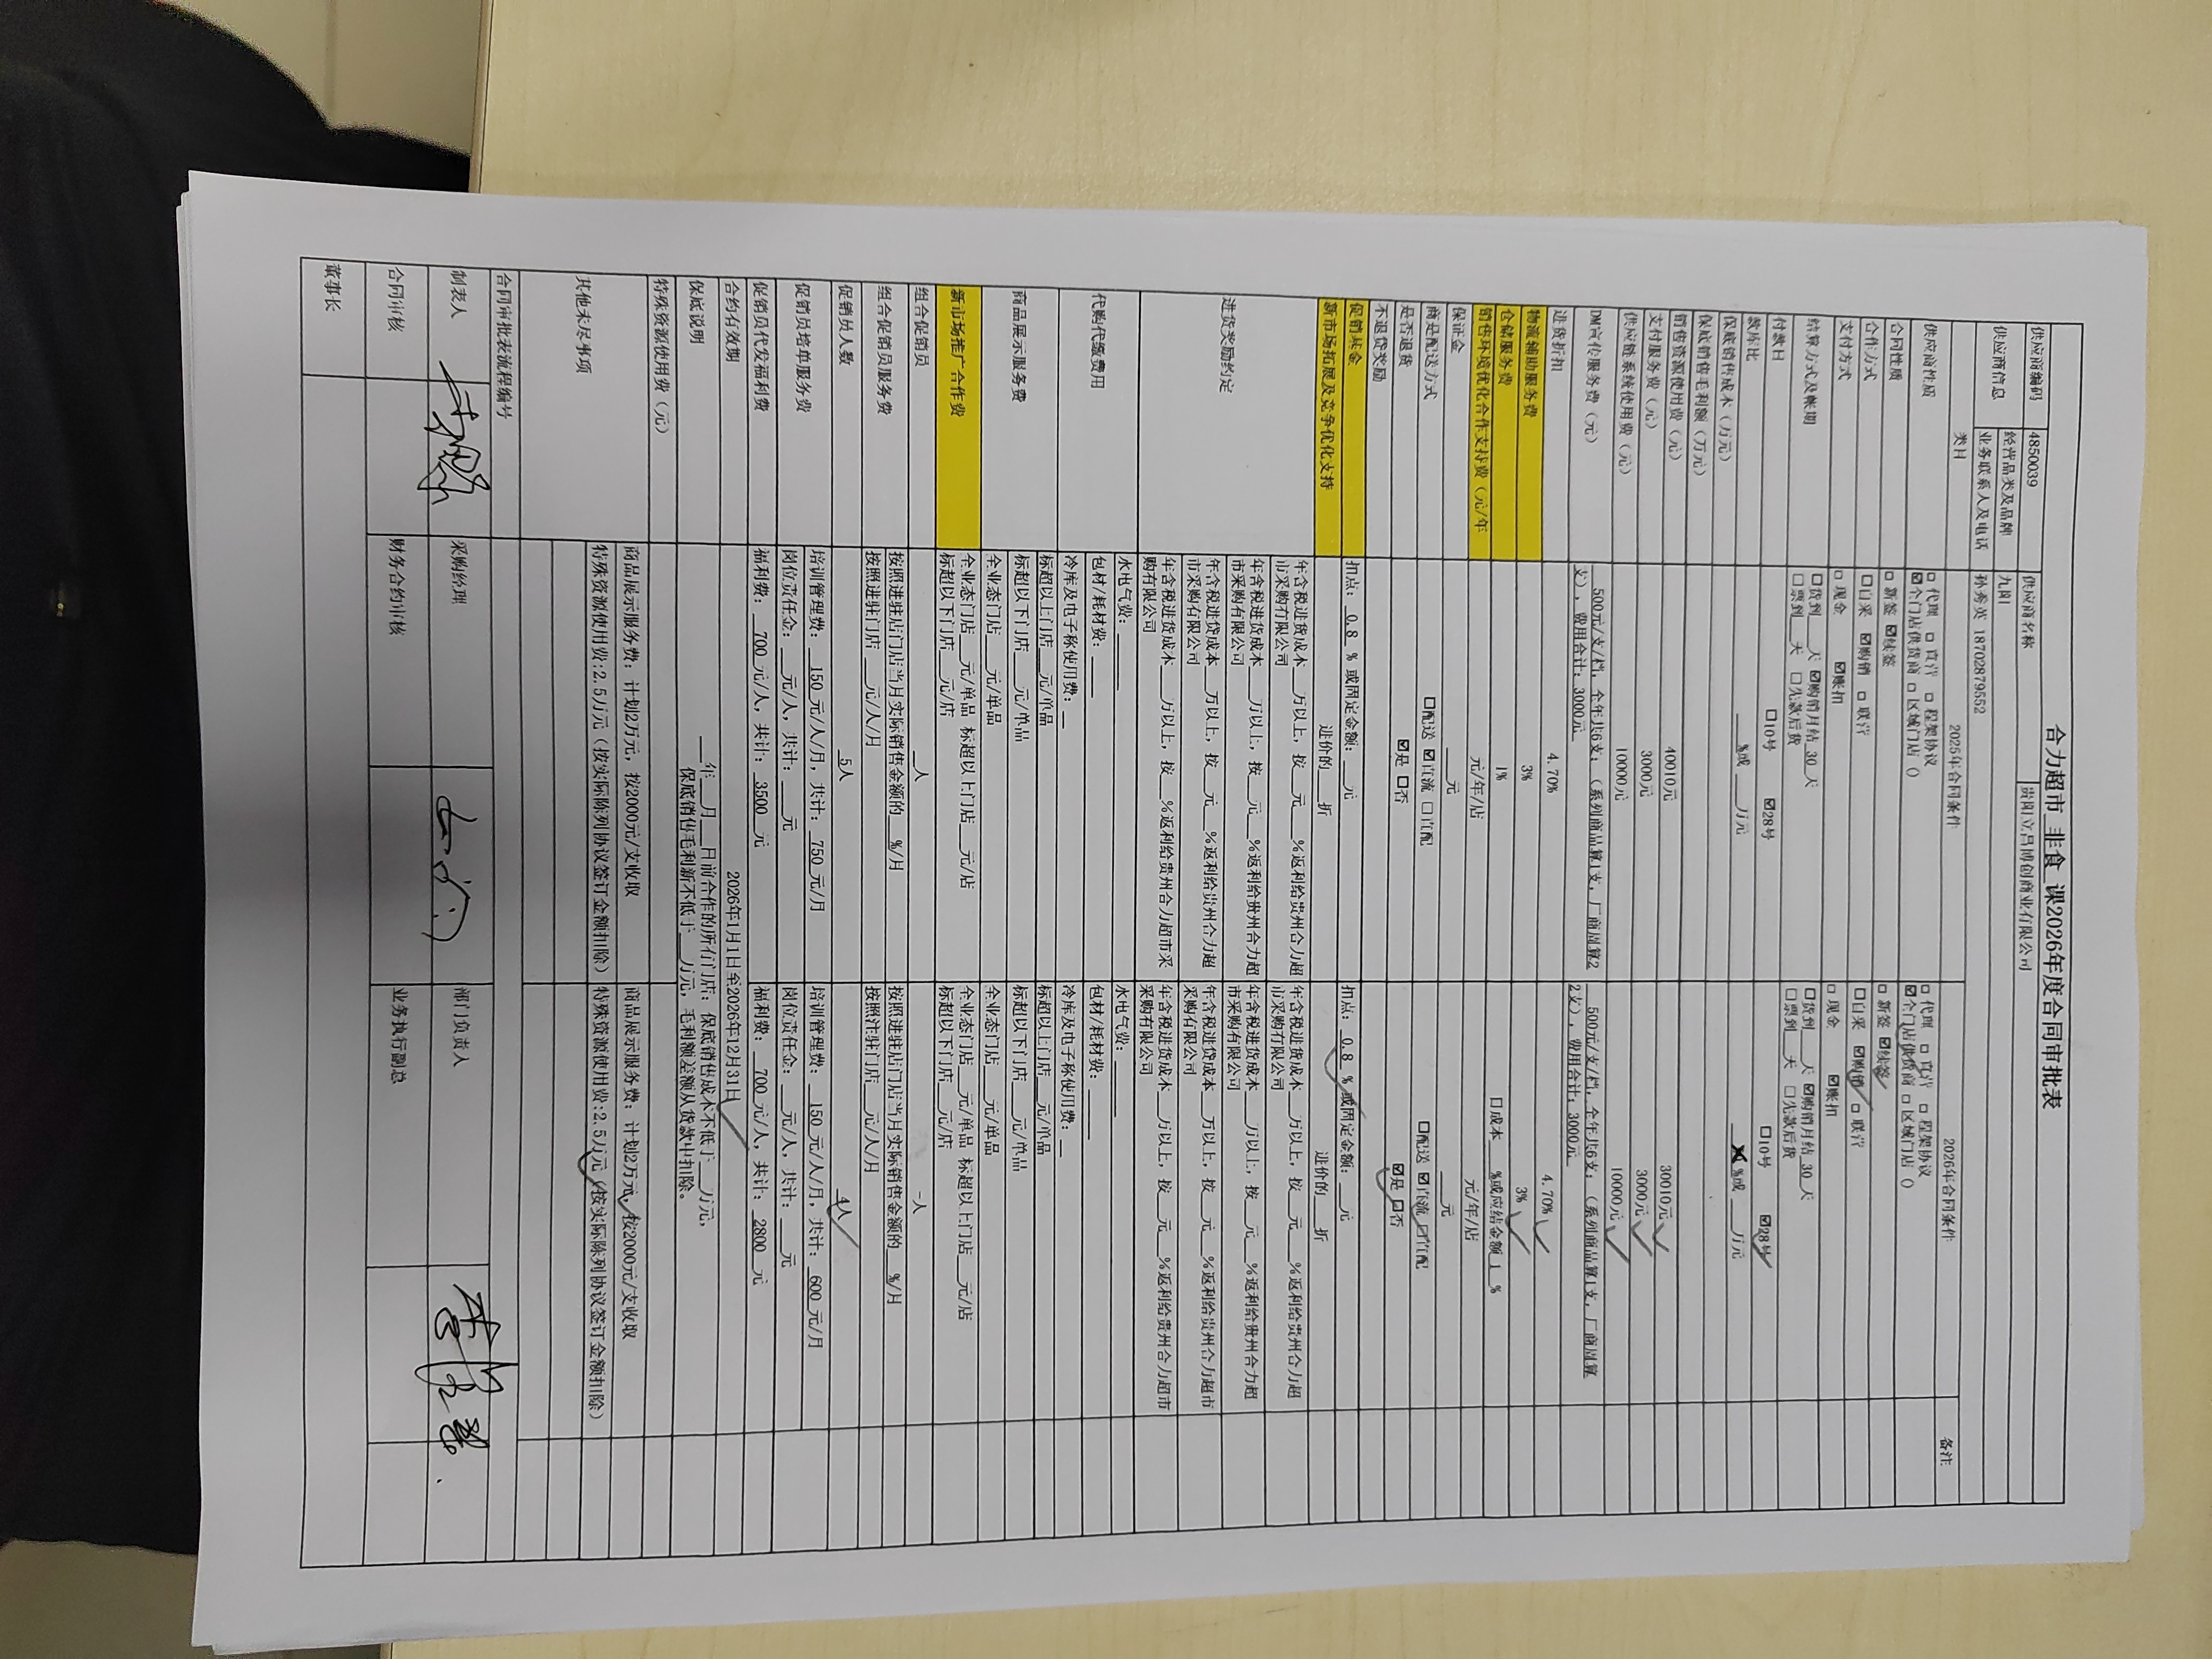 合力超市 非食 课2026年度合同审批表
供应商编码 4850039 供应商名称 贵阳立昌博创商业有限公司
供应商信息 经营品类及品牌 九阳
业务联系人及电话 孙秀英 18702879552
类目 2025年合同条件 2026年合同条件 备注
供应商性质 □代理 □直营 □框架协议 □代理 □直营 □框架协议
☑全门店供货商 □区域门店（） ☑全门店供货商 □区域门店（）
合同性质 □新签 ☑续签 □新签 ☑续签
合作方式 □自采 ☑购销 □联营 □自采 ☑购销 □联营
支付方式 □现金 ☑账扣 □现金 ☑账扣
结算方式及帐期 □货到___天 ☑购销月结_30_天 □货到___天 ☑购销月结_30_天
□票到___天 □先款后货 □票到___天 □先款后货
付款日 □10号 ☑28号 □10号 ☑28号
款库比 ___%或___万元 ___%或___万元
保底销售成本（万元）
保底销售毛利额（万元）
销售资源使用费（元） 40010元 30010元
支付服务费（元） 3000元 3000元
供应链系统使用费（元） 10000元 10000元
DM宣传服务费（元） _500元/支/档，全年共6支；（系列商品算1支，厂商周算2 _500元/支/档，全年共6支；（系列商品算1支，厂商周算
支），费用合计：3000元_ 2支），费用合计：3000元_
进货折扣 4.70% 4.70%
物流辅助服务费 3% 3%
仓储服务费 1% □成本___%或应结金额_1_%
销售环境优化合作支持费（元/年 元/年/店 元/年/店
保证金 ___元 ___元
商品配送方式 □配送 ☑直流 □直配 □配送 ☑直流 □直配
是否退货 ☑是 □否 ☑是 □否
不退货奖励
促销基金 扣点：_0.8_% 或固定金额：___元 扣点：_0.8_% 或固定金额：___元
新市场拓展及竞争优化支持 进价的___折 进价的___折
进货奖励约定 年含税进货成本___万以上，按___元___%返利给贵州合力超 年含税进货成本___万以上，按___元___%返利给贵州合力超
市采购有限公司 市采购有限公司
年含税进货成本___万以上，按___元___%返利给贵州合力超 年含税进货成本___万以上，按___元___%返利给贵州合力超
市采购有限公司 市采购有限公司
年含税进货成本___万以上，按___元___%返利给贵州合力超 年含税进货成本___万以上，按___元___%返利给贵州合力超市
市采购有限公司 采购有限公司
年含税进货成本___万以上，按___%返利给贵州合力超市采 年含税进货成本___万以上，按___元___%返利给贵州合力超市
购有限公司 采购有限公司
代购代缴费用 水电气费：______ 水电气费：______
包材/耗材费：____ 包材/耗材费：____
冷库及电子称使用费：__ 冷库及电子称使用费：__
商品展示服务费 标超以上门店___元/单品 标超以上门店___元/单品
标超以下门店___元/单品 标超以下门店___元/单品
全业态门店___元/单品 全业态门店___元/单品
新市场推广合作费 全业态门店___元/单品 标超以上门店___元/店 全业态门店___元/单品 标超以上门店___元/店
标超以下门店___元/店 标超以下门店___元/店
组合促销员 __人 __人
组合促销员服务费 按照进驻店门店当月实际销售金额的__%/月 按照进驻店门店当月实际销售金额的__%/月
按照进驻门店___元/人/月 按照进驻门店___元/人/月
促销员人数 _5人 _4人
促销员培训服务费 培训管理费：_150_元/人/月，共计：_750_元/月 培训管理费：_150_元/人/月，共计：_600_元/月
岗位责任金：___元/人，共计：___元 岗位责任金：___元/人，共计：___元
促销员代发福利费 福利费：_700_元/人，共计：_3500_元 福利费：_700_元/人，共计：_2800_元
合约有效期 2026年1月1日至2026年12月31日
保底说明 ___年___月___日前合作的所有门店：保底销售成本不低于___万元，
保底销售毛利新不低于___万元，毛利额差额从货款中扣除。
特殊资源使用费（元）
其他未尽事项 商品展示服务费：计划2万元，按2000元/支收取 商品展示服务费：计划2万元，按2000元/支收取
特殊资源使用费：2.5万元（按实际陈列协议签订金额扣除） 特殊资源使用费：2.5万元（按实际陈列协议签订金额扣除）
合同审批表流程编号
制表人 采购经理 部门负责人
合同审核 财务合约审核 业务执行副总
董事长